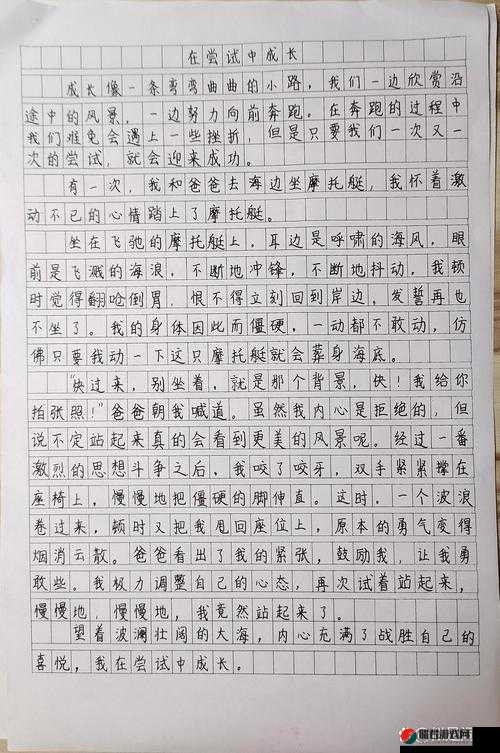 在尝试中成长
成长像一条弯弯曲曲的小路，我们一边欣赏沿
途中的风景，一边努力向前奔跑。在奔跑的过程中
我们难免会遇上一些挫折，但是只要我们一次又一
次的尝试，就会迎来成功。
有一次，我和爸爸去海边坐摩托艇，我怀着激
动不已的心情踏上了摩托艇。
坐在飞驰的摩托艇上，耳边是呼啸的海风，眼
前是飞溅的海浪，不断地冲锋，不断地抖动，我顿
时觉得翻呛倒胃，恨不得立刻回到岸边，发誓再也
不坐了。我的身体因此而僵硬，一动都不敢动，仿
佛只要我动一下这只摩托艇就会葬身海底。
“快过来，别坐着，就是那个背景，快！我给你
拍张照！”爸爸朝我喊道。虽然我内心是拒绝的，但
说不定站起来真的会看到更美的风景呢。经过一番
激烈的思想斗争之后，我咬了咬牙，双手紧紧撑在
座椅上，慢慢地把僵硬的脚伸直。这时，一个波浪
卷过来，顿时又把我甩回座位上，原本的勇气变得
烟消云散。爸爸看出了我的紧张，鼓励我，让我勇
敢些。我极力调整自己的心态，再次试着站起来，
慢慢地，慢慢地，我竟然站起来了。
望着波澜壮阔的大海，内心充满了战胜自己的
喜悦，我在尝试中成长。